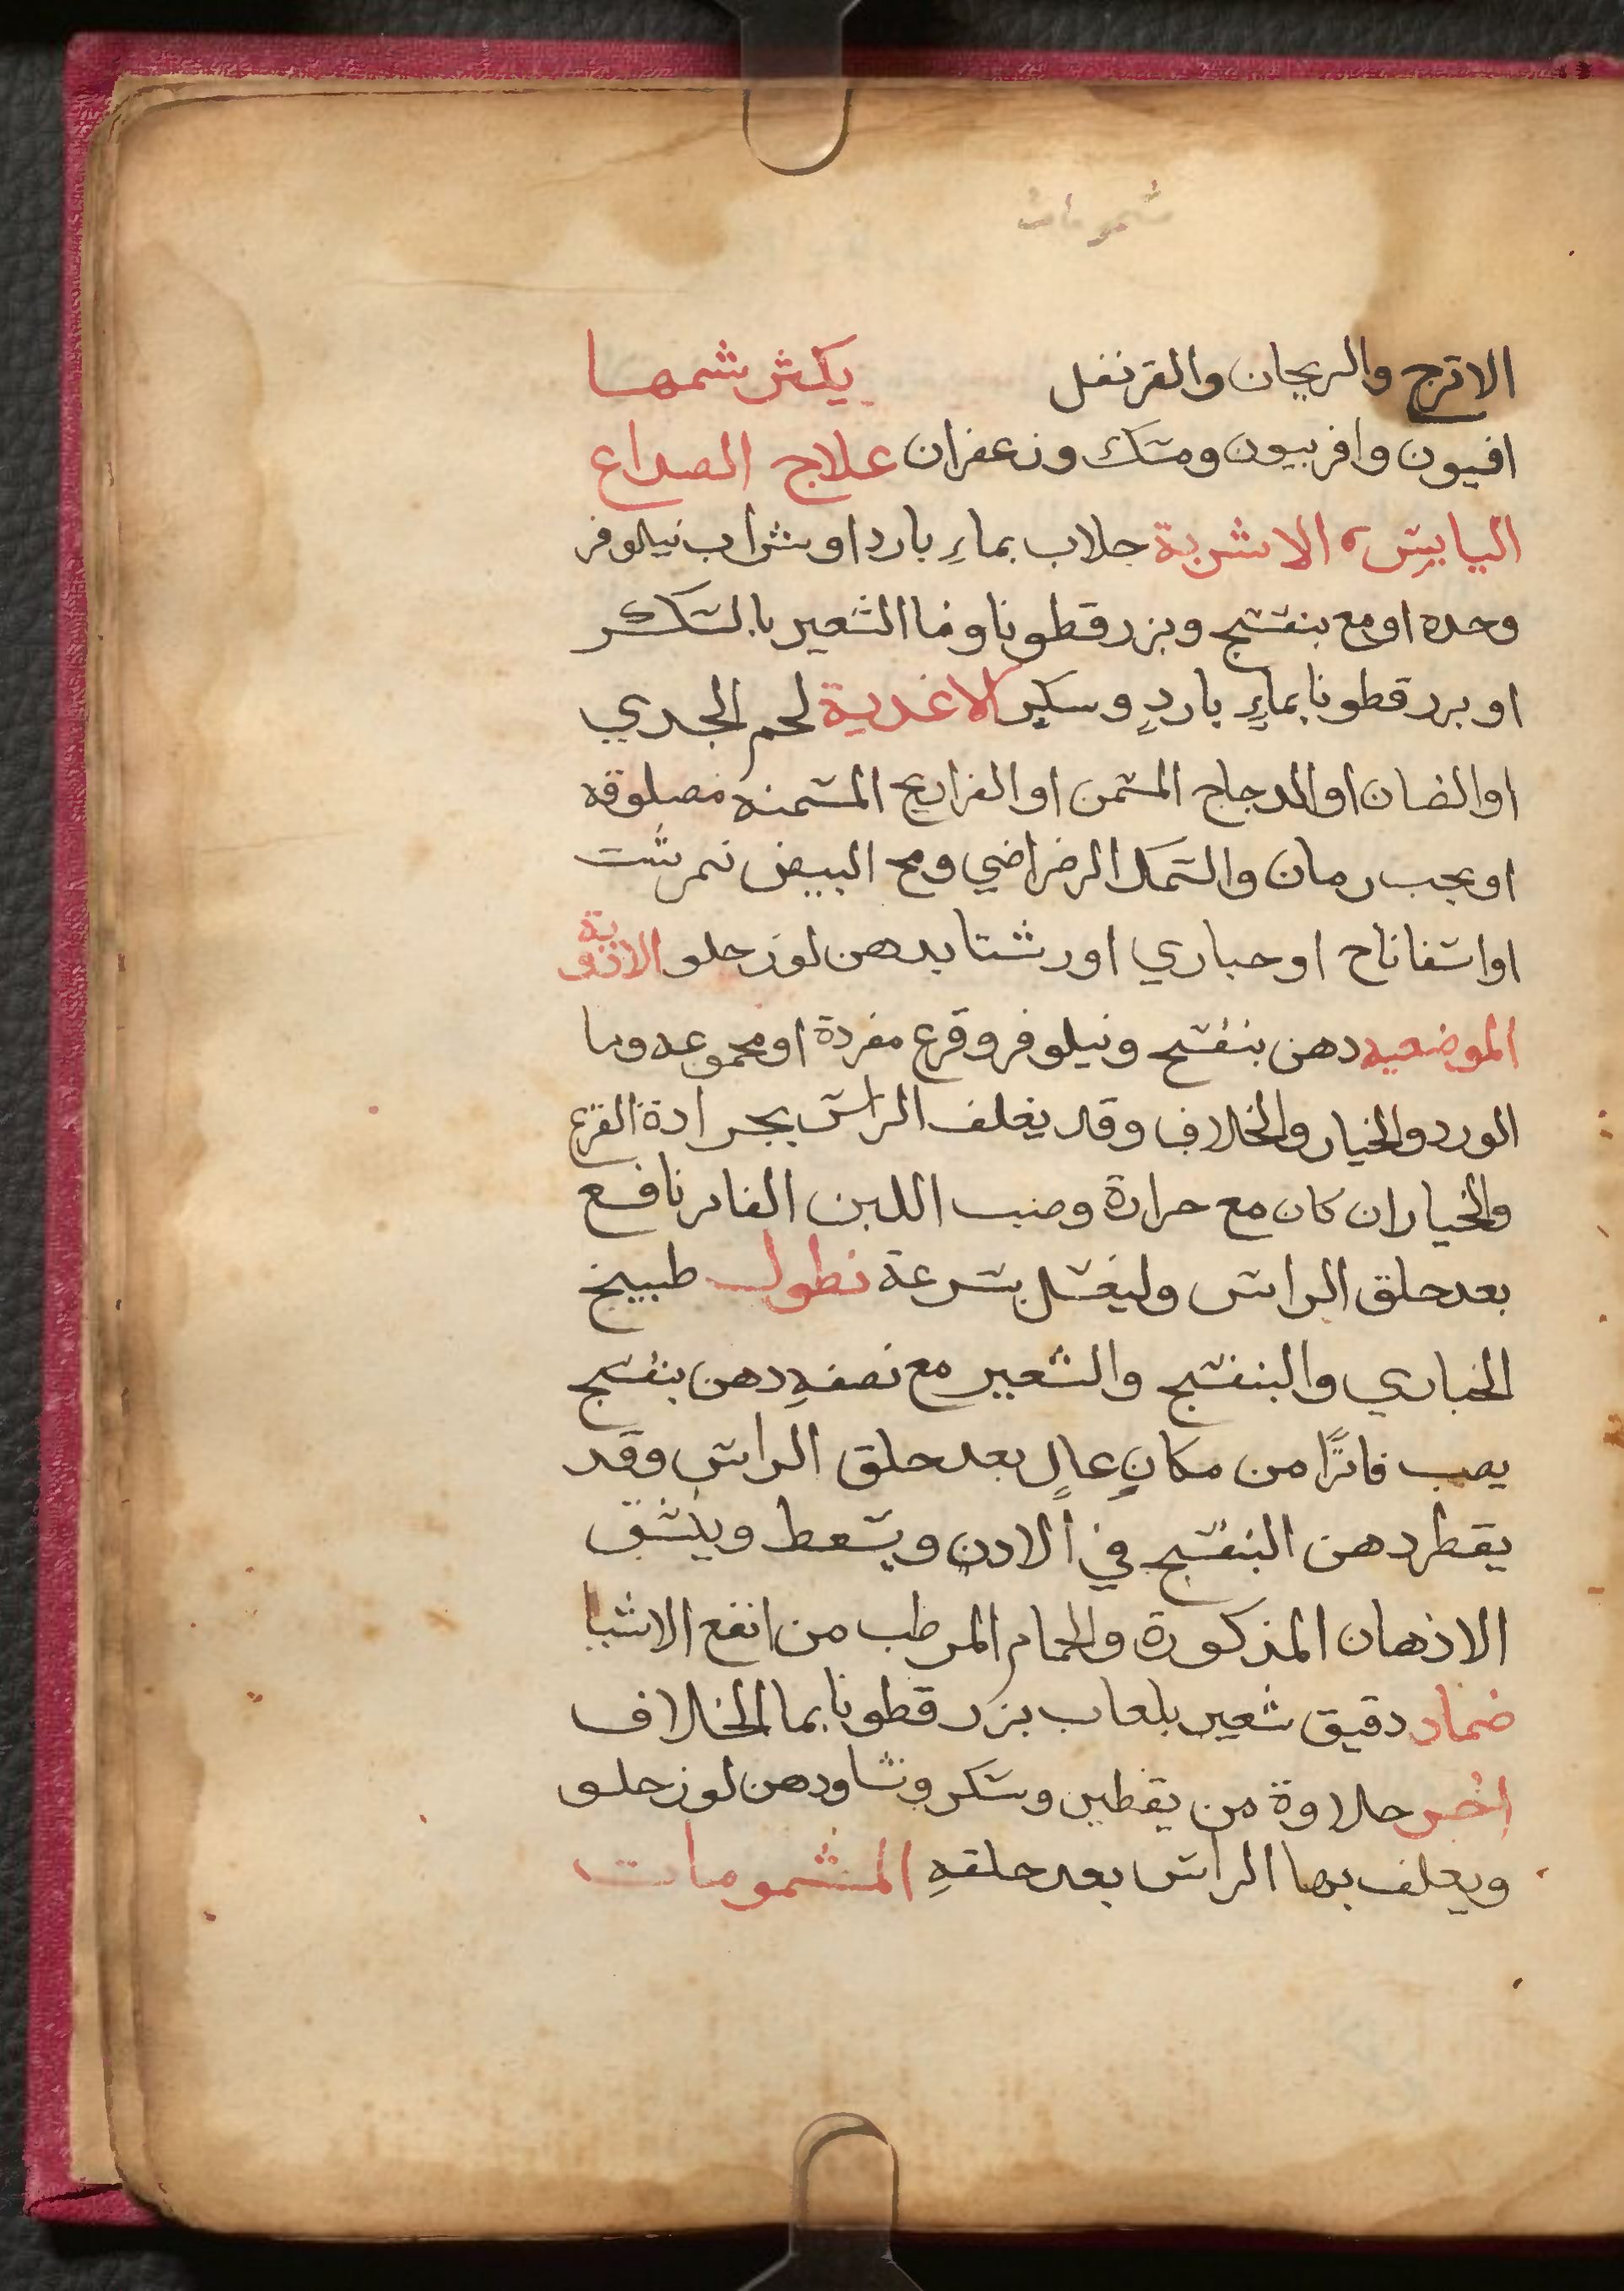 شمومات
الاترج والريحان والقرنفل يكثر شمها
افيون وافربيون ومسك وزعفران علاج الصداع
اليابس الاشربة جلاب بماءِ بارد او شراب نيلوفر
وحده او مع بنفسج وبزر قطونا وما الشعير بالسكر
او بزر قطونا بماءٍ باردٍ وسكرٍ الاغدية لحم الجدي
او الضان او الدجاج المسمن او الفراريج المسمنه مصلوقه
او بحب رمان والسمك الرضراضي ومح البيض نمرشت
او اسفاناح او خباري او رشتا بدهن لوز حلو الادوية
الموضعيه دهن بنفسج ونيلوفر وقرع مفردة او مجموعه وما
الورد والخيار والخلاف وقد يغلف الراس بجرادة القرع
والخيار ان كان مع حرارة وصب اللبن الفاتر نافع
بعد حلق الراس وليغسل بسرعة نطول طبيخ
الخباري والبنفسج والشعير مع نصفهِ دهن بنفسج
يصب فاترًا من مكانٍ عالٍ بعد حلق الراس وقد
يقطر دهن البنفسج في الادن ويسعط وينشق
الاذهان المذكورة والحمام المرطب من انفع الاشيا
ضماد دقيق شعير بلعاب بزر قطونا بما الخلاف
اخر حلاوة من يقطين وسكر ونشا ودهن لوز حلو
ويغلف بها الراس بعد حلقهِ المشمومات